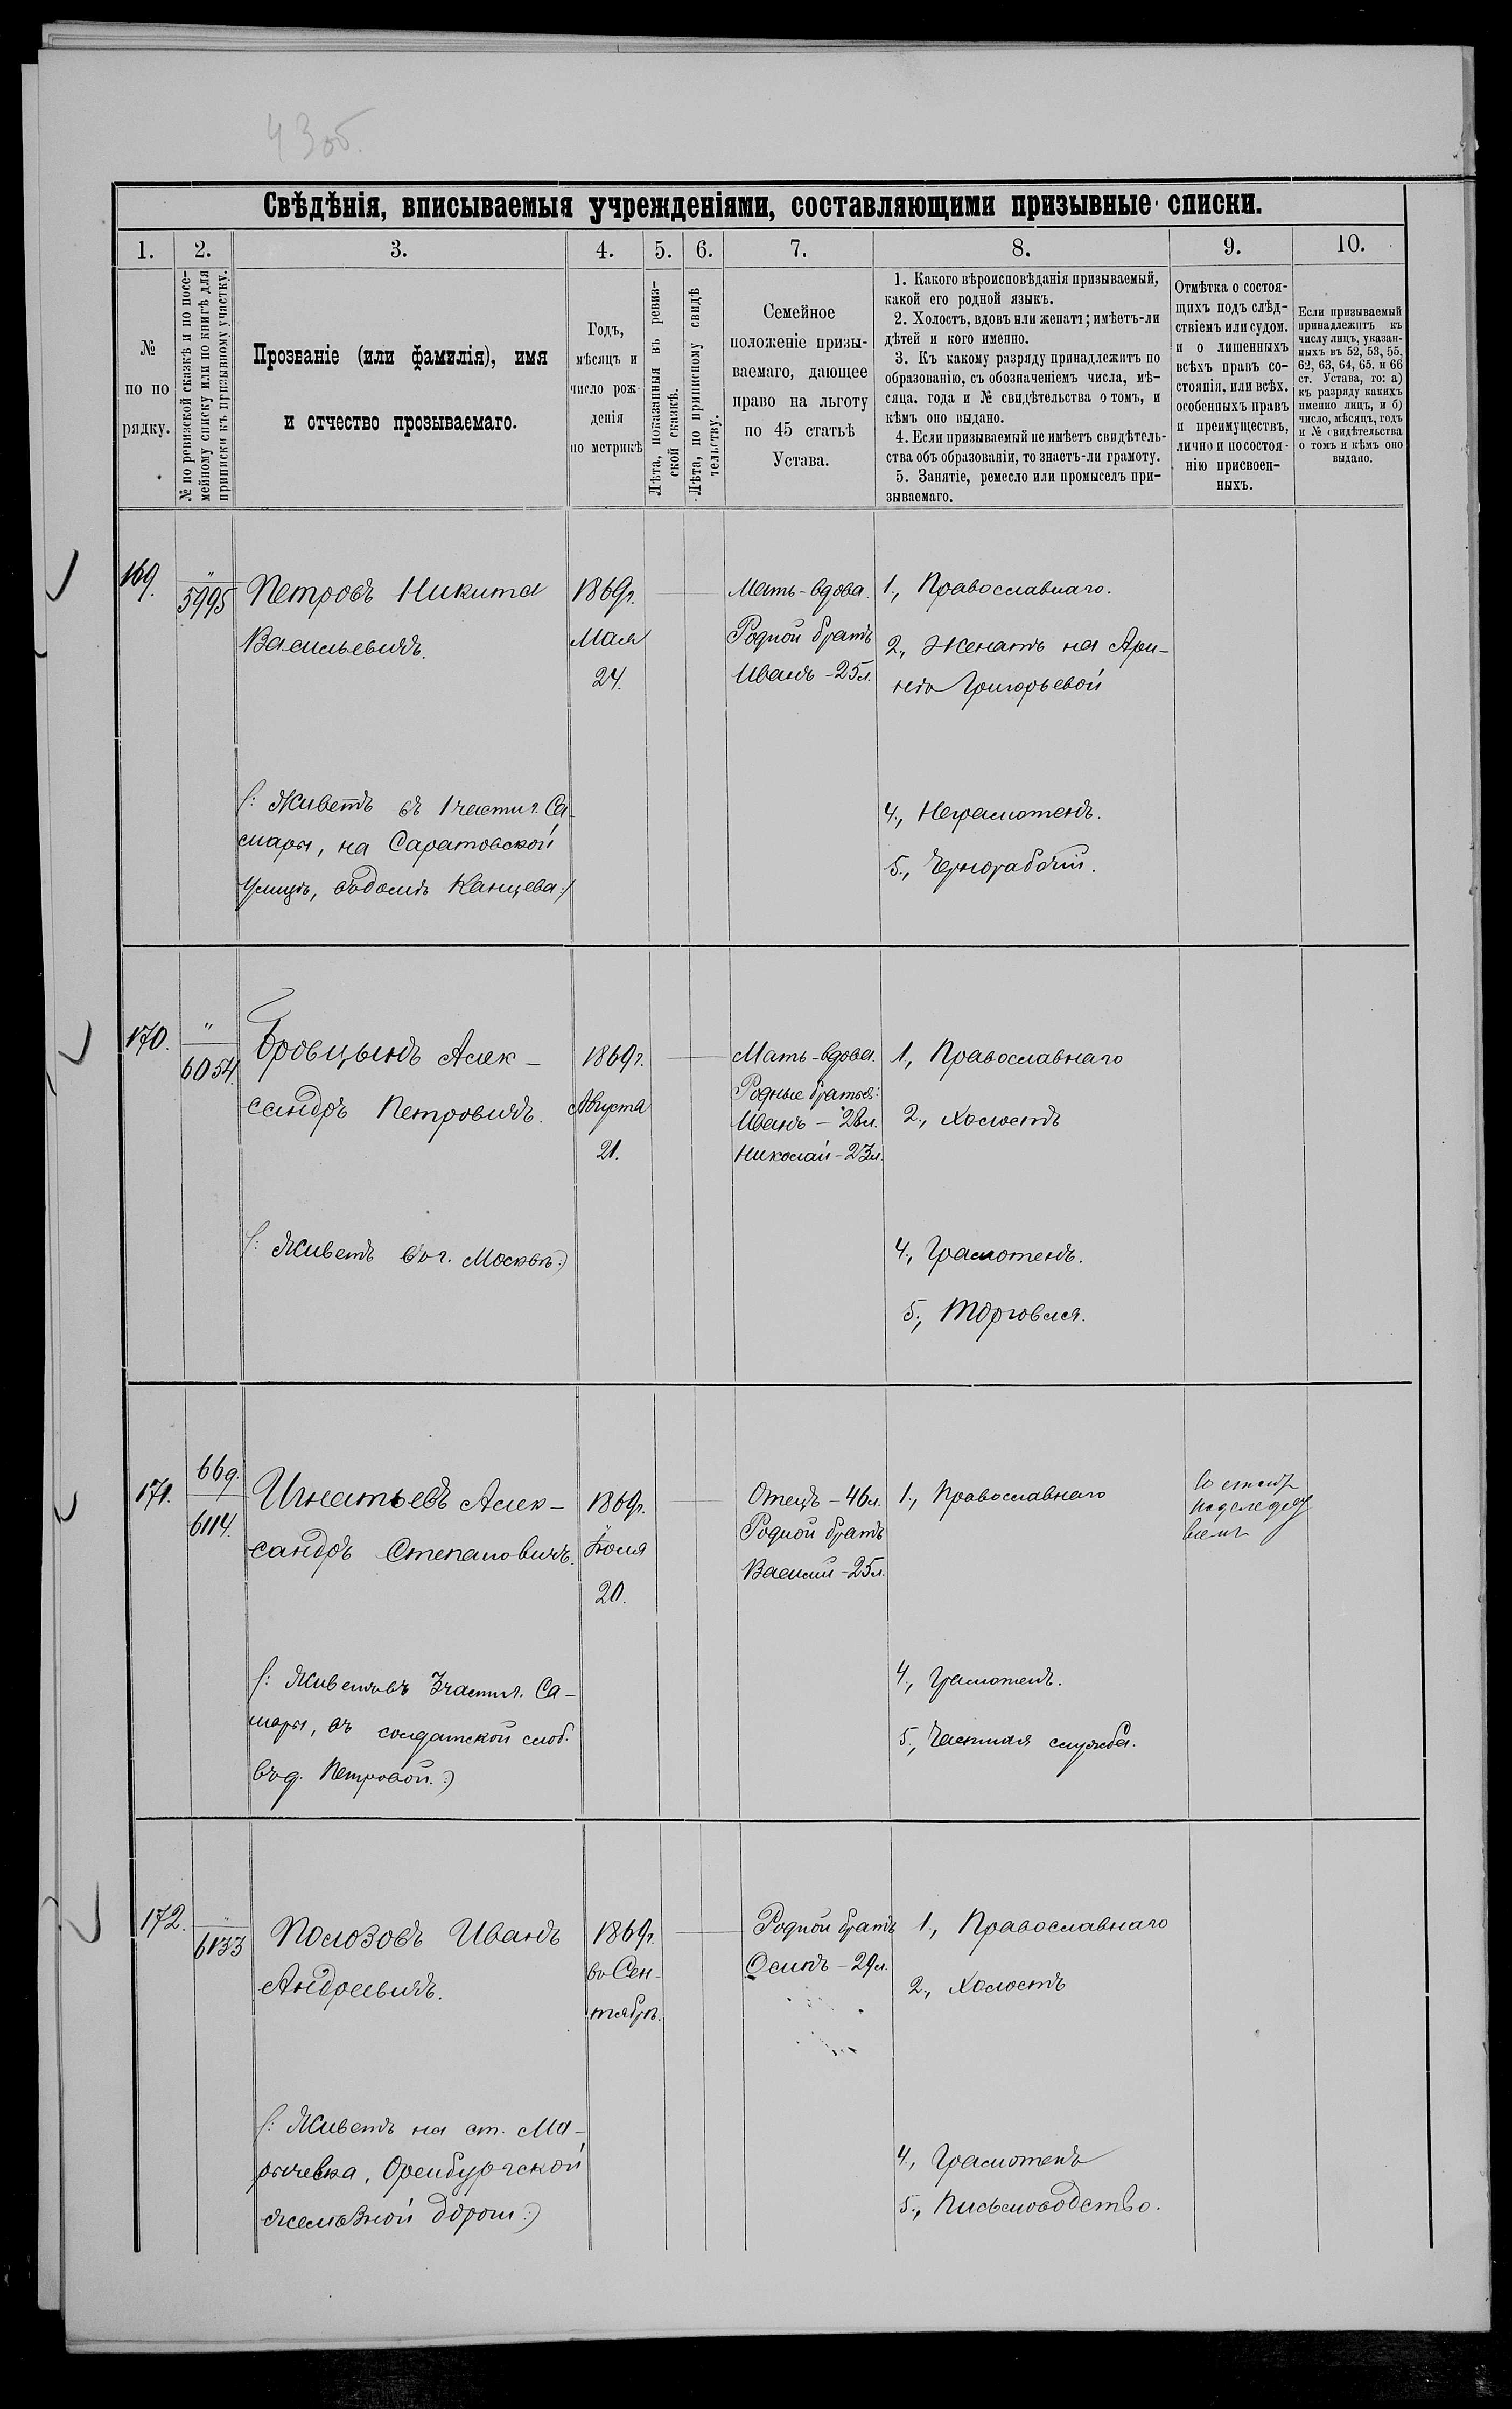 43об.
Свѣдѣнія, вписываемыя учрежденіями, составляющими призывные списки.
1. 2. 3. 4. 5. 6. 7. 8. 9. 10.
№
по по
рядку.
№ по ревизской сказкѣ и по посе-
мейному списку или по книгѣ для
приписки къ призывному участку.
Прозваніе (или фамилія), имя
и отчество прозываемаго.
Годъ,
мѣсяцъ и
число рож-
денія
по метрикѣ
Лѣта, показанныя въ ревиз-
ской сказкѣ.
Лѣта, по приписному свидѣ
тельству.
Семейное
положеніе призы-
ваемаго, дающее
право на льготу
по 45 статьѣ
Устава.
1. Какого вѣроисповѣданія призываемый,
какой его родной языкъ.
2. Холостъ, вдовъ или женатъ; имѣетъ-ли
дѣтей и кого именно.
3. Къ какому разряду принадлежитъ по
образованію, съ обозначеніемъ числа, мѣ-
сяца. года и № свидѣтельства о томъ, и
кѣмъ оно выдано.
4. Если призываемый не имѣетъ свидѣтель-
ства объ образованіи, то знаетъ-ли грамоту.
5. Занятіе, ремесло или промыселъ при-
зываемаго.
Отмѣтка о состоя-
щихъ подъ слѣд-
ствіемъ или судом.
и о лишенныхъ
всѣхъ правъ со-
стоянія, или всѣх.
особенныхъ правъ
и преимуществъ,
лично и по состоя-
нію присвоен-
ныхъ.
Если призываемый
принадлежитъ къ
числу лицъ, указан-
ныхъ въ 52, 53, 55,
62, 63, 64, 65, и 66
ст. Устава, то: а)
къ разряду какихъ
именно лицъ, и б)
число, мѣсяцъ, годъ
и № свидѣтельства
о томъ и кѣмъ оно
выдано.
169.
"
5995
Петровъ Никита
Васильевичъ.
1869г.
Мая
24.
Мать-вдова.
Родной братъ
Иванъ-25л.
1., Православнаго.
2., Женатъ на Ари-
нѣ Григорьевой
/: Живетъ въ 1 части г. Са-
мары, на Саратовской
улицѣ, въ домѣ Канцева :/
4., Неграмотенъ.
5., Чернорабочій.
170.
"
6054.
Бровцынъ Алек-
сандръ Петровичъ.
1869г.
Августа
21.
Мать-вдова.
Родные братья:
Иванъ - 28л.
Николай-23л.
1., Православнаго
2., Холостъ
(: Живетъ въ г. Москвѣ :)
4., Грамотенъ.
5., Торговля.
171.
669.
6114.
Игнатьевъ Алек-
сандръ Степановичъ.
1869г.
Іюля
20.
Отецъ-46л.
Родной братъ
Василій-25л.
1., Православнаго
Состоитъ
подслед
(: Живетъ въ 3 части г. Са-
мары, въ солдатской слоб.
въ д. Петровой. :)
4., Грамотенъ.
5., Частная служба.
172.
"
6133
Полозовъ Иванъ
Андреевичъ.
1869г.
въ Сен-
тябрѣ.
Родной братъ
Осипъ-29л.
1., Православнаго
2., Холостъ
(: Живетъ на ст. Ма-
рычевка, Оренбургской
желѣзной дороги :)
4., Грамотенъ
5., Письмоводство.